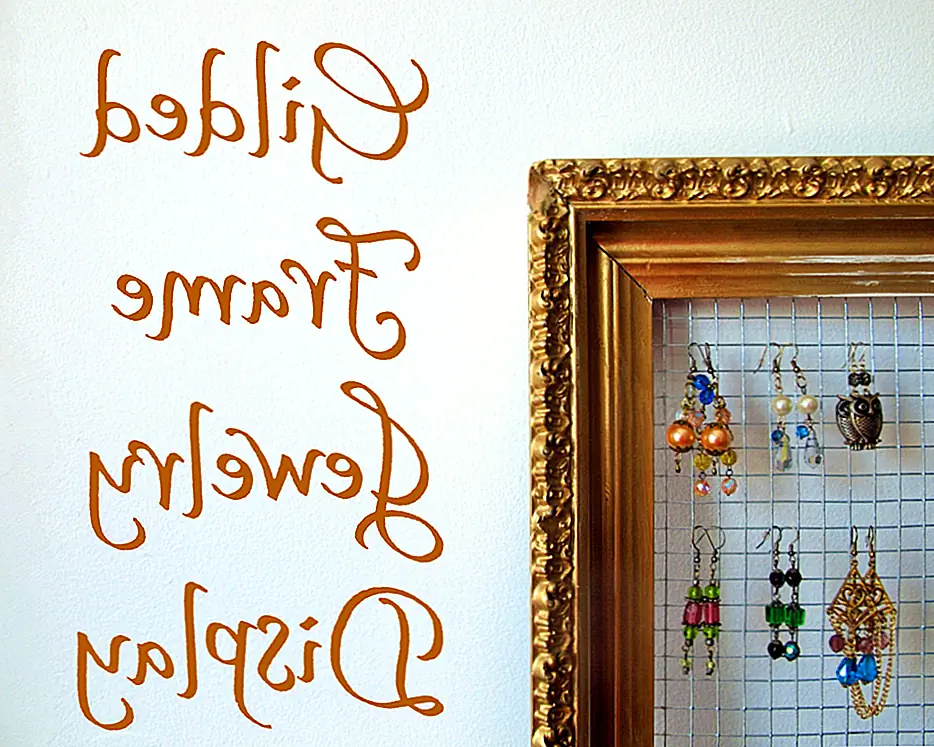 Gilded
Frame
Jewelry
Display